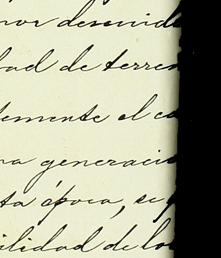 por desenvid
dad de terren
temente el ca
na generació
ta época, se
ilidad de lo